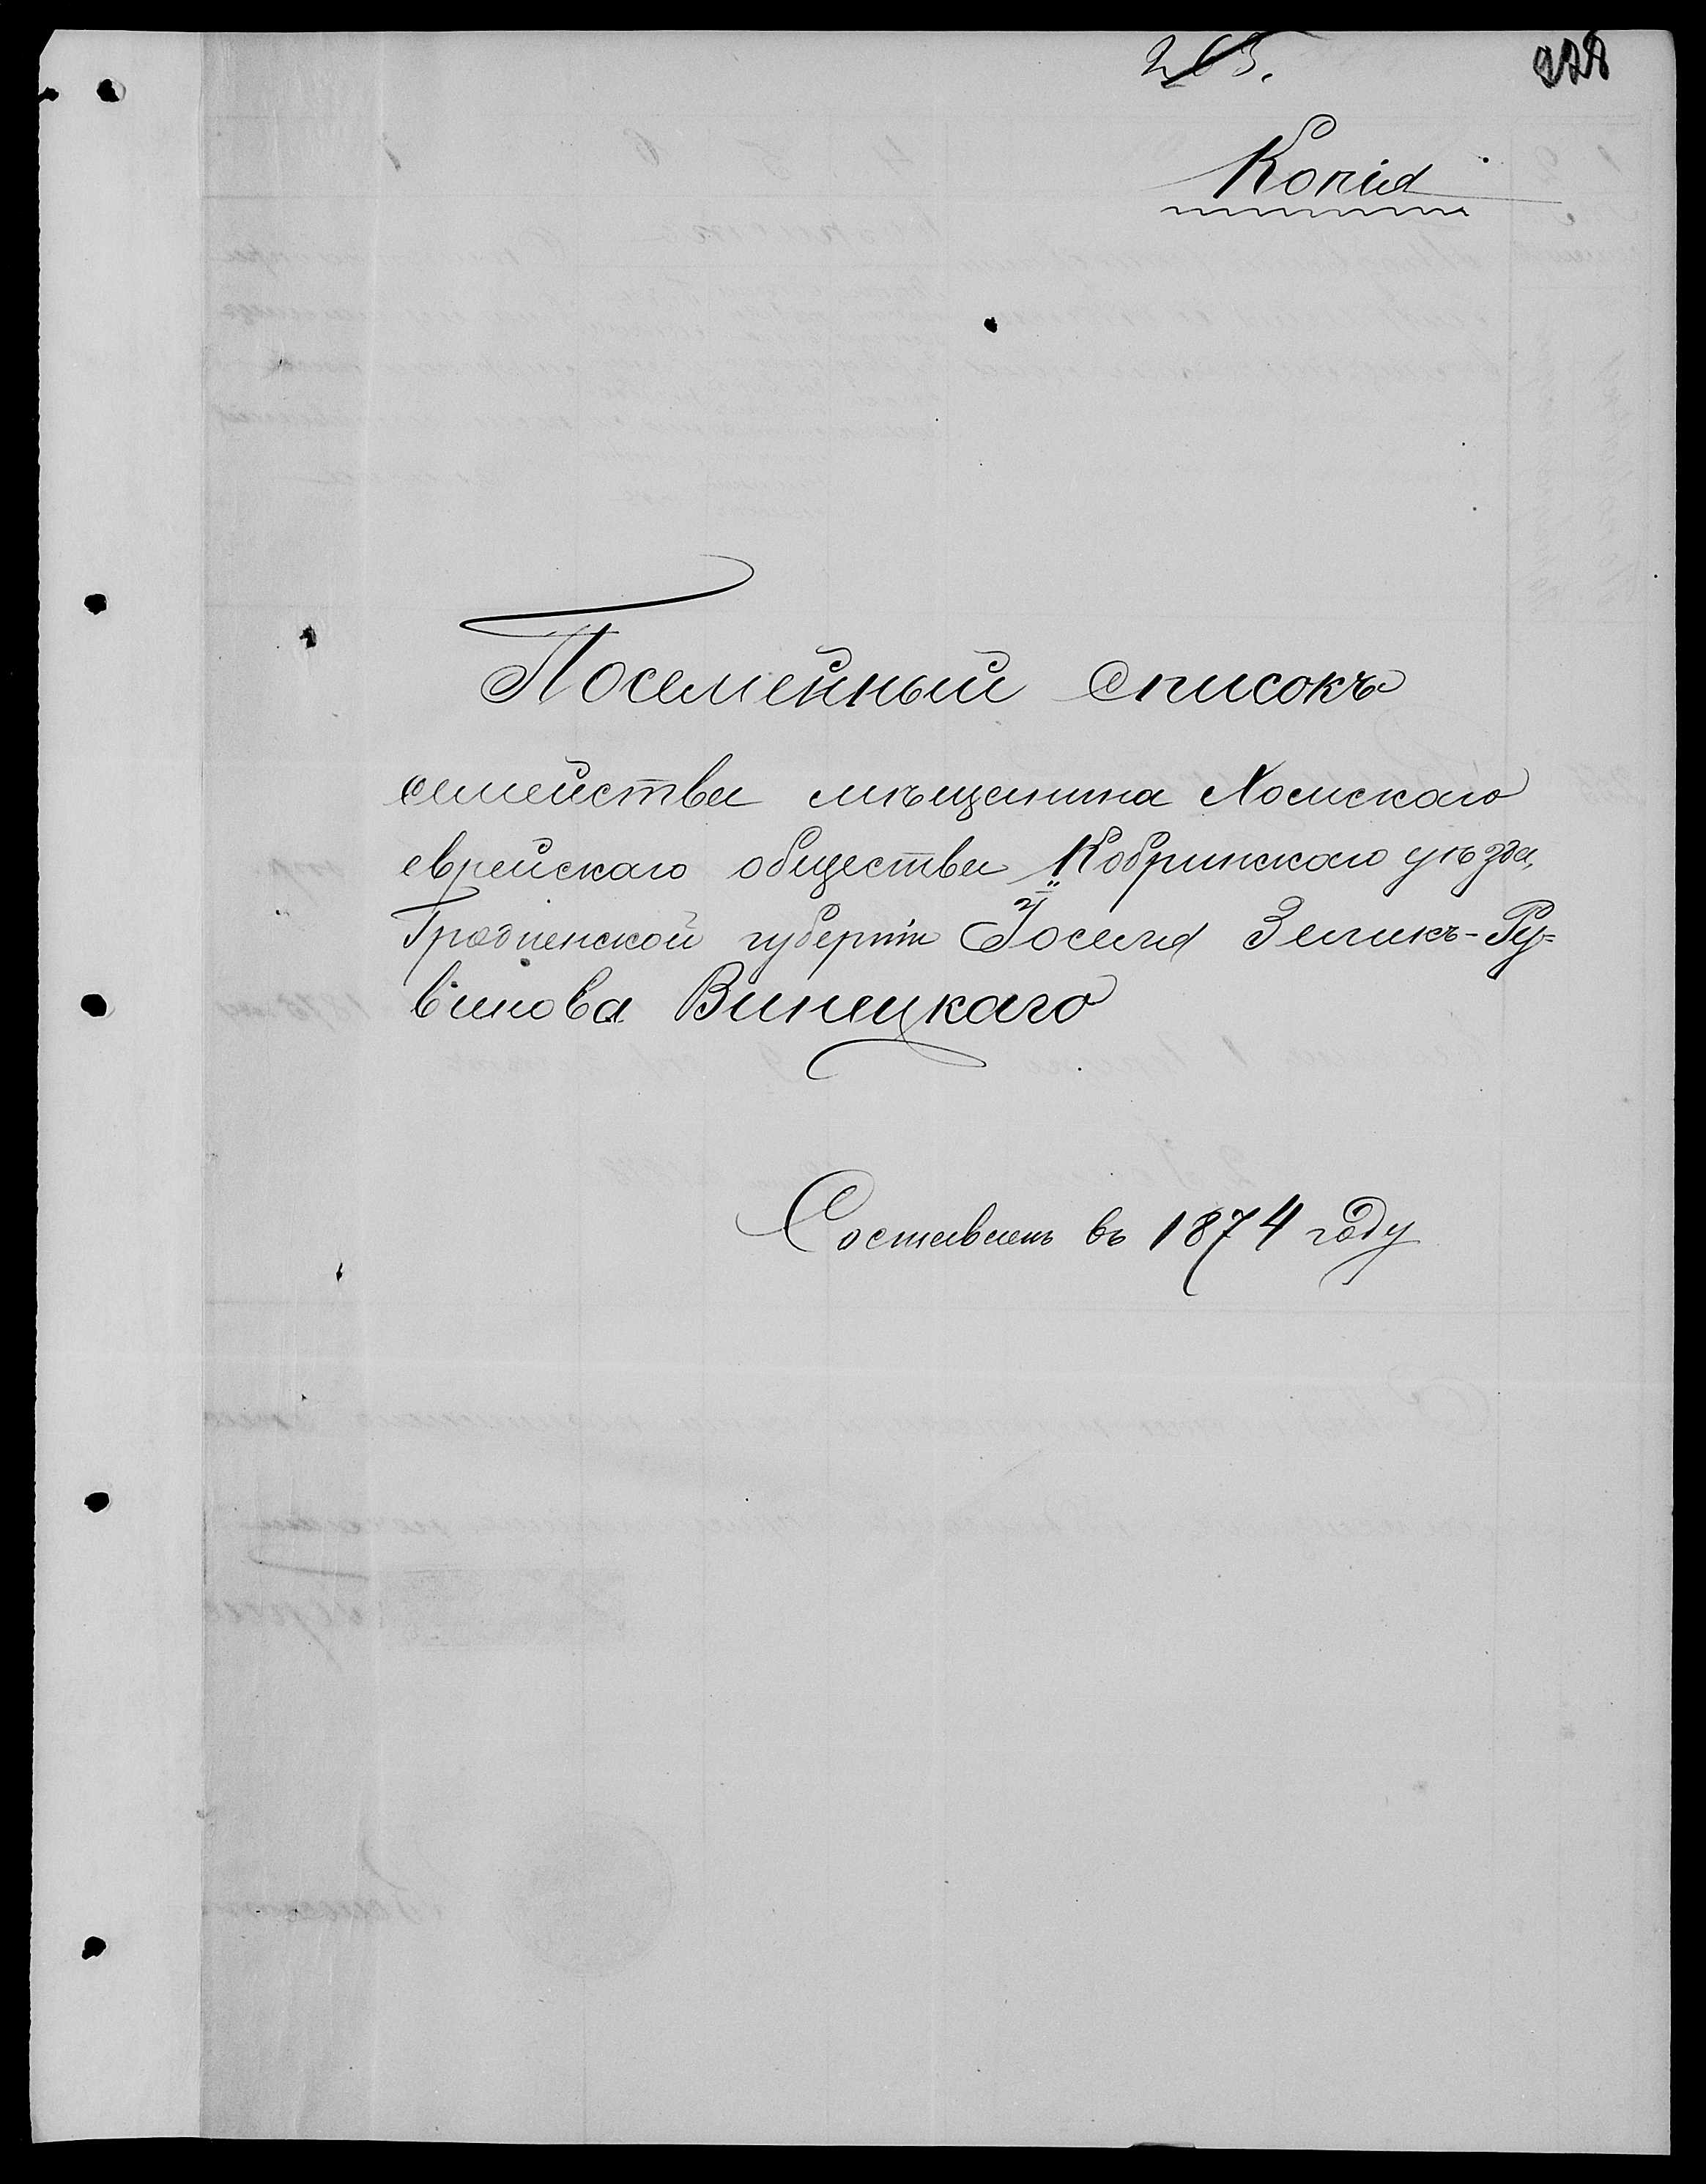 265.
228
Копія
Посемейный списокъ
семейства мѣщанина Хомскаго
еврейскаго общества Кобринскаго уѣзда,
Гродненской губерніи Іоселя Зеликъ-Ру=
вимова Винецкаго
Составленъ въ 1874 году